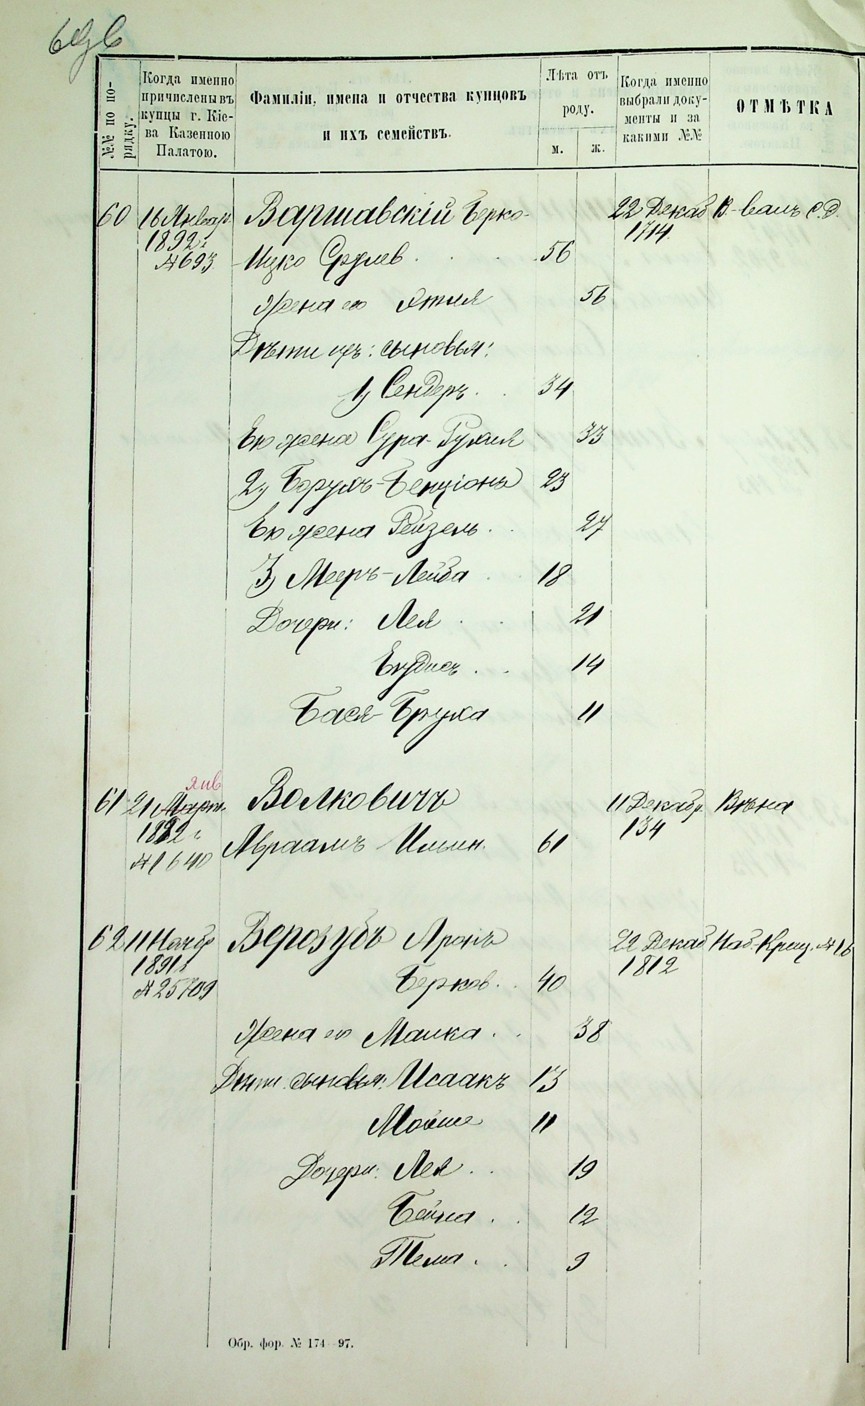 №№ по по-
рядку.
Когда именно
причислены въ
купцы г. Кіе-
ва Казенною
Палатою.
Фамиліи, имена и отчества купцовъ
и ихъ семействъ.
Лѣта отъ
роду.
м. ж.
Когда именно
выбрали доку-
менты и за
какими №№
ОТМѢТКА
60 16 Январ. Варшавскій Берко- 22 Декаб
1892 г. 1714
№ 693 -Ицко Срулев 56
Жена его 56
Дѣти ихъ: сыновья:
1) Сендеръ 34
Его жена Сура-Рухля 33
2) Борухъ-Бенціонъ 23
Его жена Рейзель 27
3) Мееръ-Лейба 18
Дочери: Лея 21
Ендись 14
Бася-Бруха 11
янв
61 21 Март. Волковичъ 11 Декабр.
134
№ 1640 Авраамъ Ильин. 61
62 11 Ноябр Верозубъ Аронъ 22 Декаб Наб. Крещ. № 16
1891 г. 1812
№ 25709 Берков. 40
Жена его Малка 38
Дѣти: сыновья: Исаакъ 13
Мойше 11
Дочери: Лея 19
Бейна 12
Тема 9
Обр. фор. № 174—97.